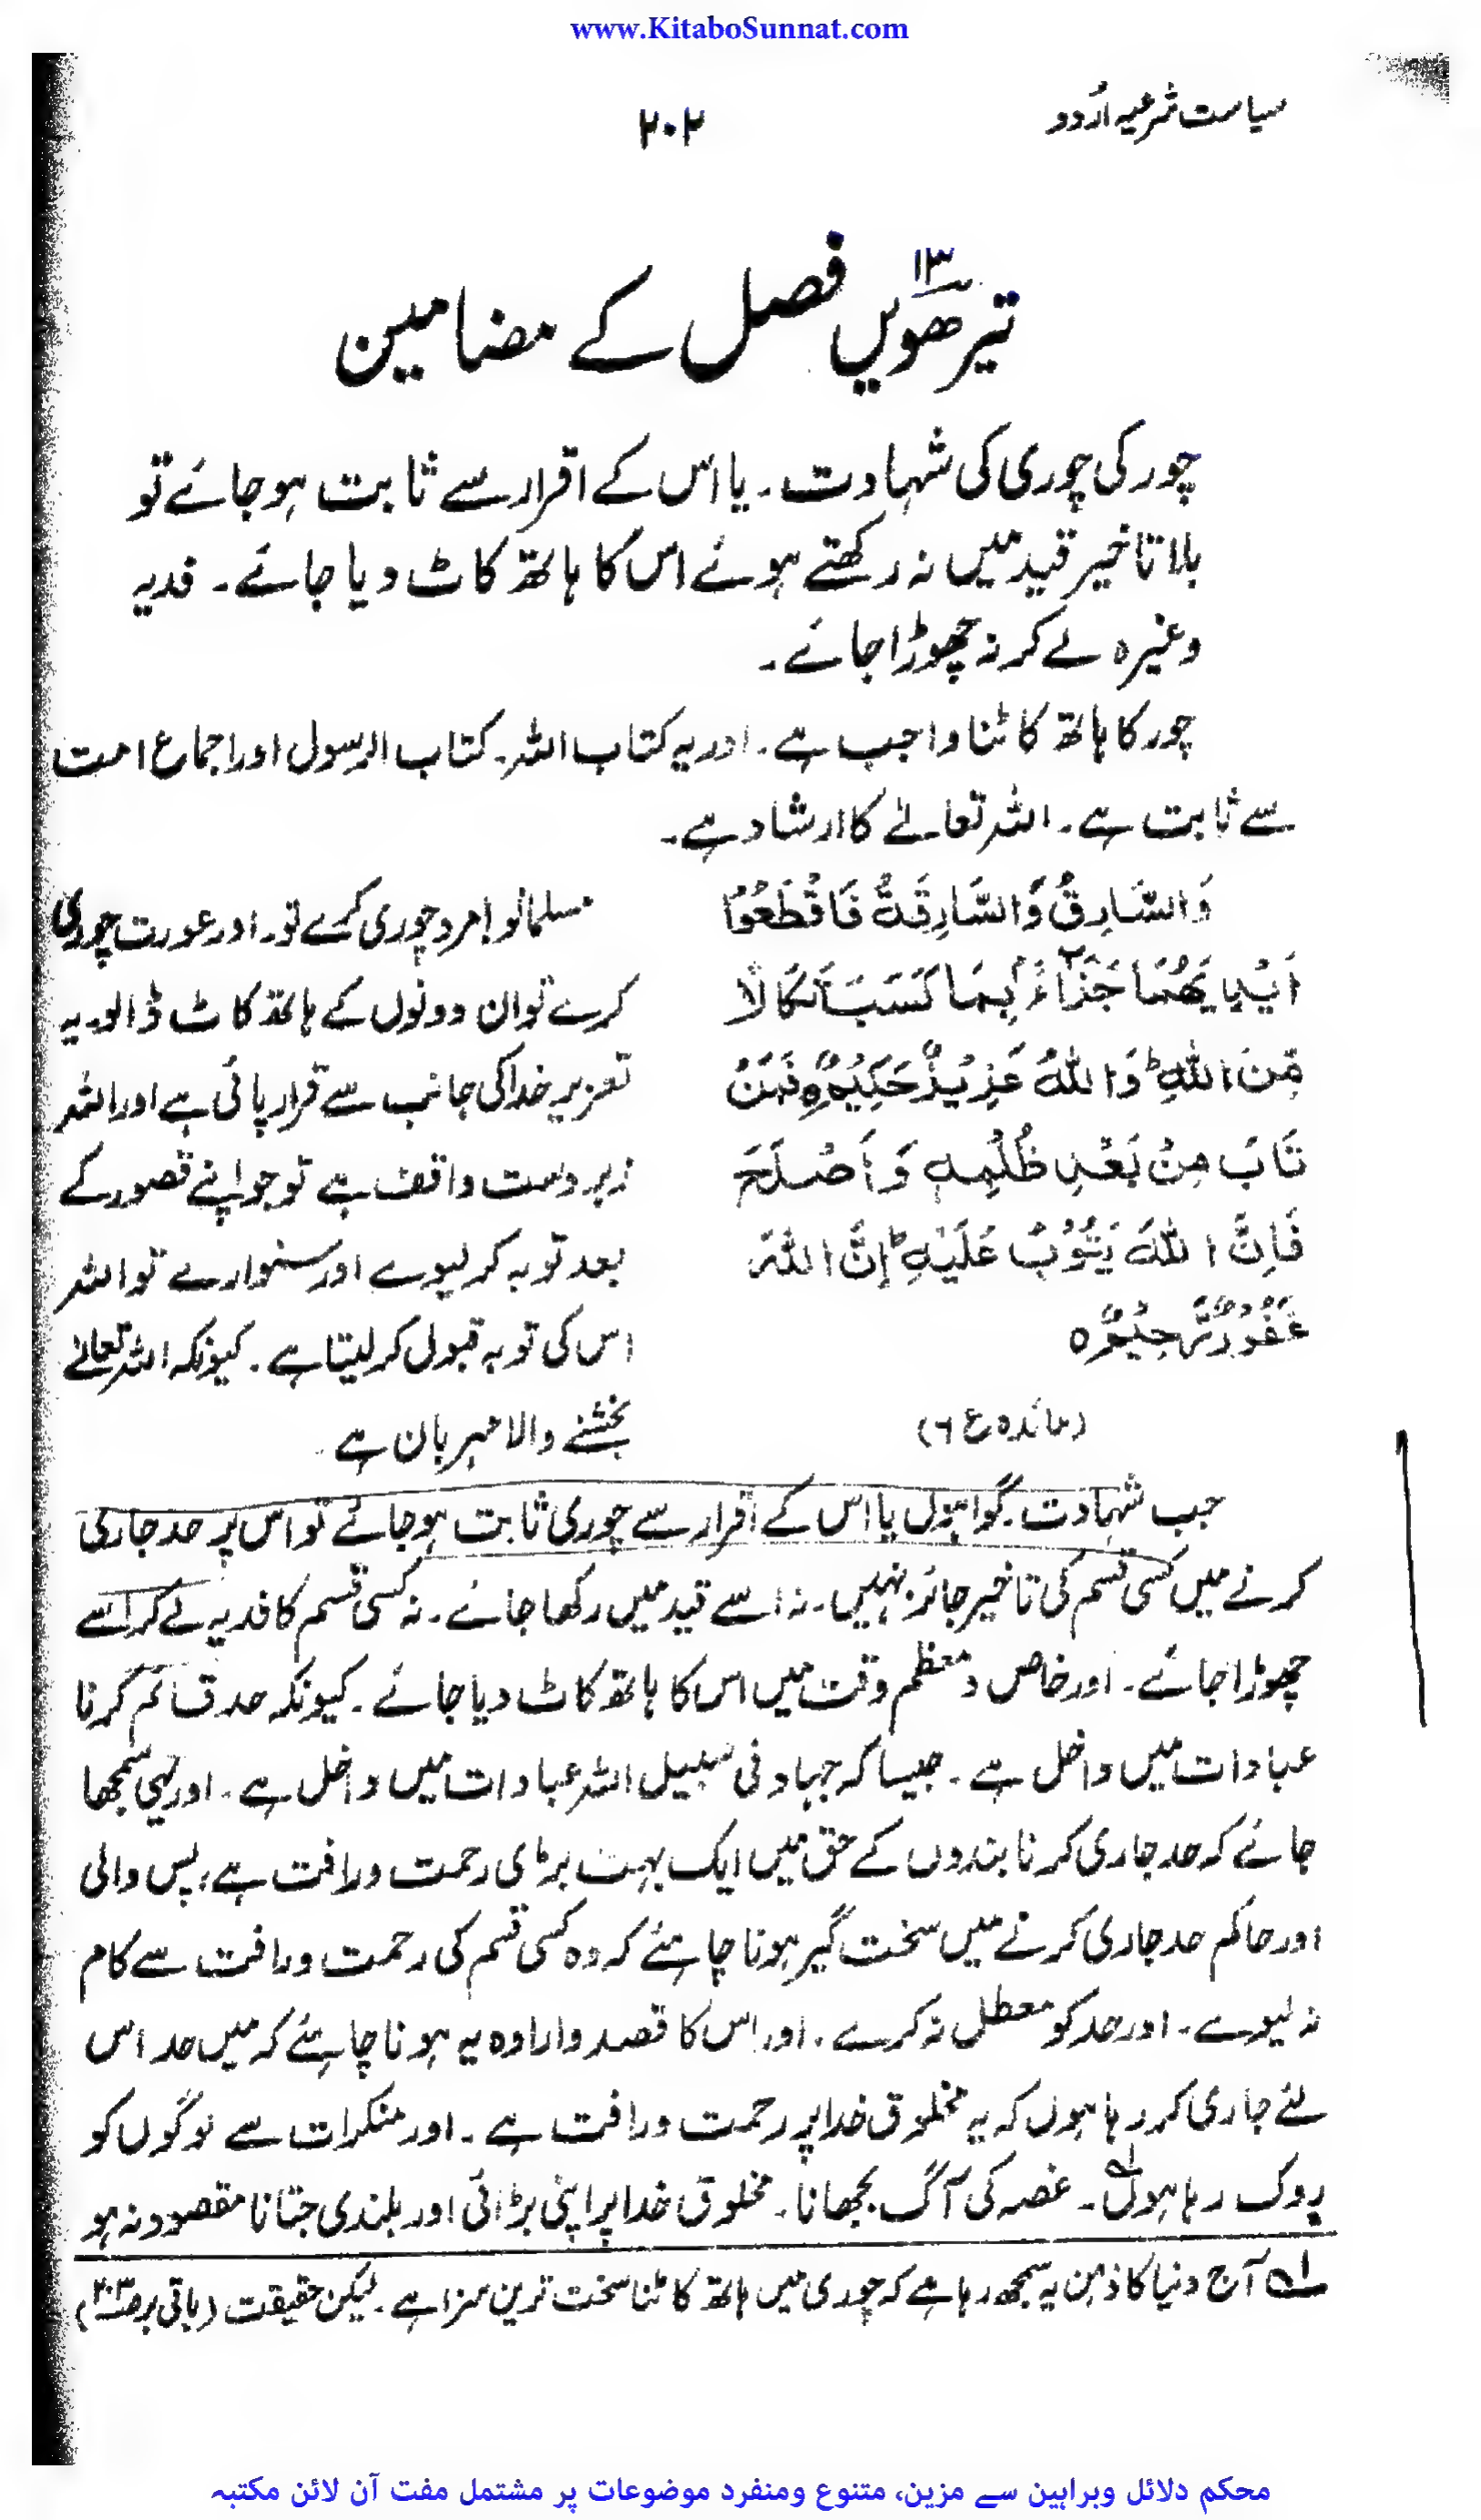 www.KitaboSunnat.com
سیاست شرعیہ اُردو
۲۰۲
۱۳
تیرھویں فصل کے مضامین
چور کی چوری کی شہادت۔ یا اس کے اقرار سے ثابت ہوجائے تو
بلا تاخیر قید میں نہ رکھتے ہوئے اس کا ہاتھ کاٹ دیا جائے۔ فدیہ
وغیرہ لے کر نہ چھوڑا جائے۔
چور کا ہاتھ کاٹنا واجب ہے۔ اور یہ کتاب اللہ۔ کتاب الرسول اور اجماع امت
سے ثابت ہے۔ اللہ تعالےٰ کا ارشاد ہے۔
وَالسَّارِقُ وَالسَّارِقَةُ فَاقْطَعُوْا
اَيْدِيَهُمَا جَزَآءً بِمَا كَسَبَا نَكَالًا
مِّنَ اللّٰهِ ؕ وَاللّٰهُ عَزِيْزٌ حَكِيْمٌ ه فَمَنْ
تَابَ مِنْ بَعْدِ ظُلْمِهٖ وَاَصْلَحَ
فَاِنَّ اللّٰهَ يَتُوْبُ عَلَيْهِ ؕ اِنَّ اللّٰهَ
غَفُوْرٌ رَّحِيْمٌ ه
(مائدہ ع ۶)
مسلمانو! مرد چوری کرے تو۔ اور عورت چوری
کرے تو ان دونوں کے ہاتھ کاٹ ڈالو۔ یہ
تعزیر خدا کی جانب سے قرار پائی ہے اور اللہ
زبردست واقف ہے تو جو اپنے قصور کے
بعد توبہ کر لیوے اور سنوارے تو اللہ
اس کی توبہ قبول کرلیتا ہے۔ کیونکہ اللہ تعالےٰ
بخشنے والا مہربان ہے۔
جب شہادت۔ گواہوں یا اس کے اقرار سے چوری ثابت ہوجائے تو اس پر حد جاری
کرنے میں کسی قسم کی تاخیر جائز نہیں۔ نہ اسے قید میں رکھا جائے۔ نہ کسی قسم کا فدیہ لے کر اسے
چھوڑا جائے۔ اور خاص و معظم وقت میں اس کا ہاتھ کاٹ دیا جائے۔ کیونکہ حد قائم کرنا
عبادات میں داخل ہے۔ جیسا کہ جہاد فی سبیل اللہ عبادات میں داخل ہے۔ اور یہی سمجھا
جائے کہ حد جاری کرنا بندوں کے حق میں ایک بہت بڑی رحمت ورافت ہے، پس والی
اور حاکم حد جاری کرنے میں سخت گیر ہونا چاہئے کہ وہ کسی قسم کی رحمت ورافت سے کام
نہ لیوے۔ اور حد کو معطل نہ کرے۔ اور اس کا قصد وارادہ یہ ہونا چاہئے کہ میں حد اس
لئے جاری کر رہا ہوں کہ یہ مخلوق خدا پر رحمت ورافت ہے۔ اور منکرات سے لوگوں کو
روک رہا ہوں۱؎۔ غصہ کی آگ بجھانا۔ مخلوق خدا پر اپنی بڑائی اور بلندی جتانا مقصود نہ ہو
۱؎ آج دنیا کا ذہن یہ سمجھ رہا ہے کہ چوری میں ہاتھ کاٹنا سخت ترین سزا ہے۔ لیکن حقیقت (باقی برصـ۲۰۳)
محکم دلائل وبراہین سے مزین، متنوع ومنفرد موضوعات پر مشتمل مفت آن لائن مکتبہ